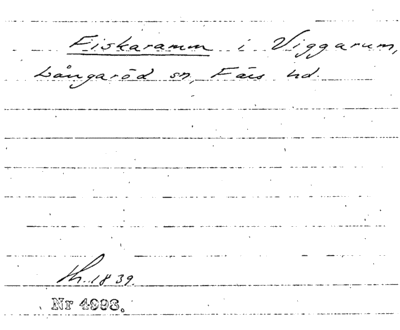 Fiskaramm i Viggarum,
Långaröd sn, Färs hd.
Th. 1839.
Nr 4998.